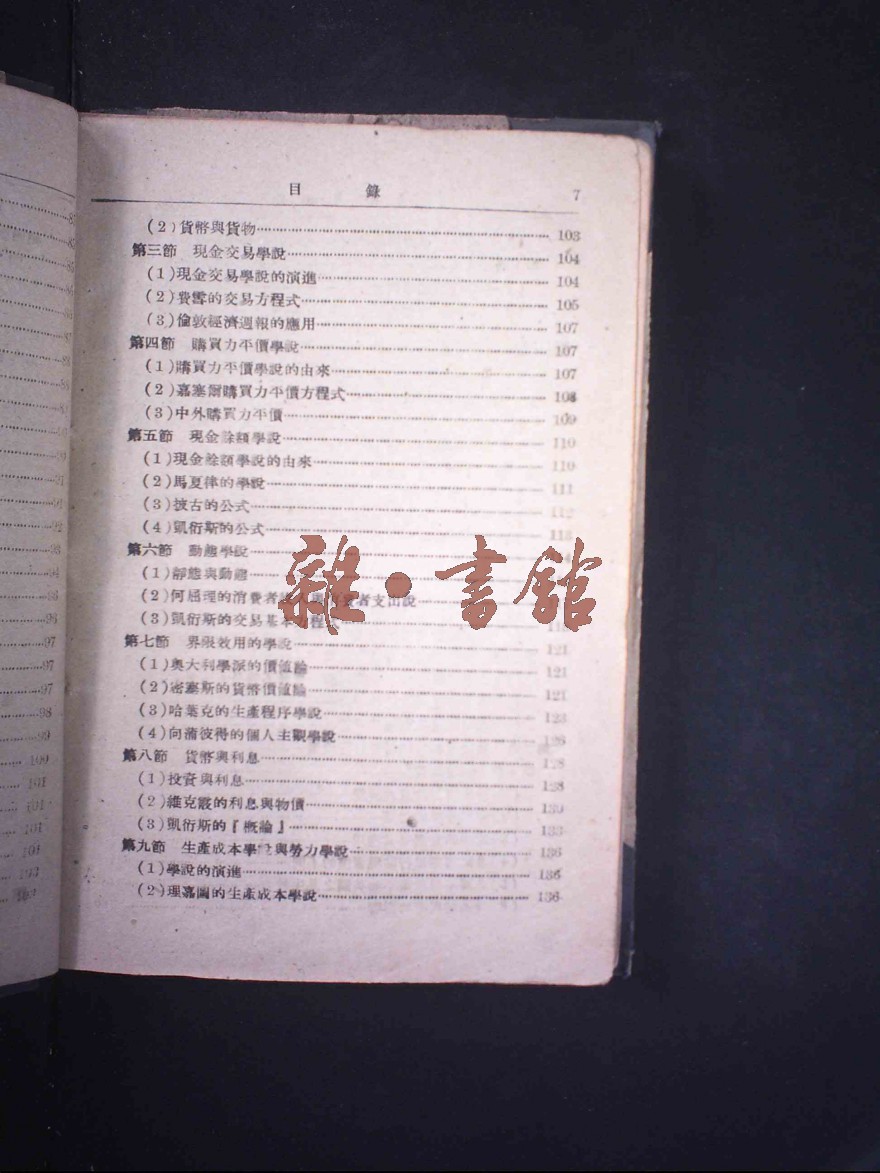 目　錄　7
(2)貨幣與貨物 103
第三節　現金交易學說 104
(1)現金交易學說的演進 104
(2)費雪的交易方程式 105
(3)倫敦經濟週報的應用 107
第四節　購買力平價學說 107
(1)購買力平價學說的由來 107
(2)嘉塞爾購買力平價方程式 108
(3)中外購買力平價 109
第五節　現金餘額學說 110
(1)現金餘額學說的由來 110
(2)馬夏律的學說 111
(3)披古的公式 112
(4)凱衍斯的公式 113
第六節　動態學說
(1)靜態與動態
(2)何屈理的消費者 者支出說
(3)凱衍斯的交易基本方程式
第七節　界限效用的學說 121
(1)奧大利學派的價值論 121
(2)密塞斯的貨幣價值論 121
(3)哈葉克的生產程序學說 123
(4)向蒲彼得的個人主觀學說 126
第八節　貨幣與利息 128
(1)投資與利息 128
(2)維克塞的利息與物價 130
(3)凱衍斯的『概論』 133
第九節　生產成本學說與勞力學說 136
(1)學說的演進 136
(2)理嘉圖的生產成本學說 136
雜·書館
83
85
86
86
87
88
91
91
92
93
94
96
97
97
97
98
99
100
101
101
101
101